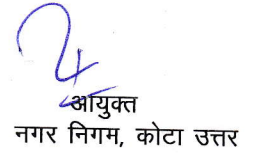 आयुक्त
नगर निगम, कोटा उत्तर